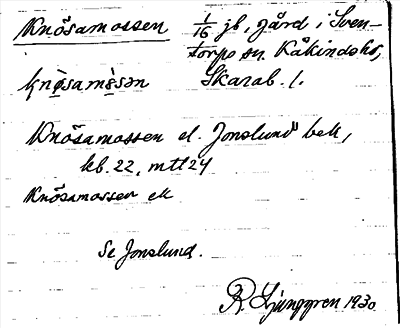 Knösamossen 1/16 jb, gård i Sven-
torps sn. Kåkinds hd,
Skarab. l.
Knösamossen el. Jonslund" bek,
kb. 22, mtl 24
Knösamossen ek
Se Jonslund.
R. Ljunggren 1930.